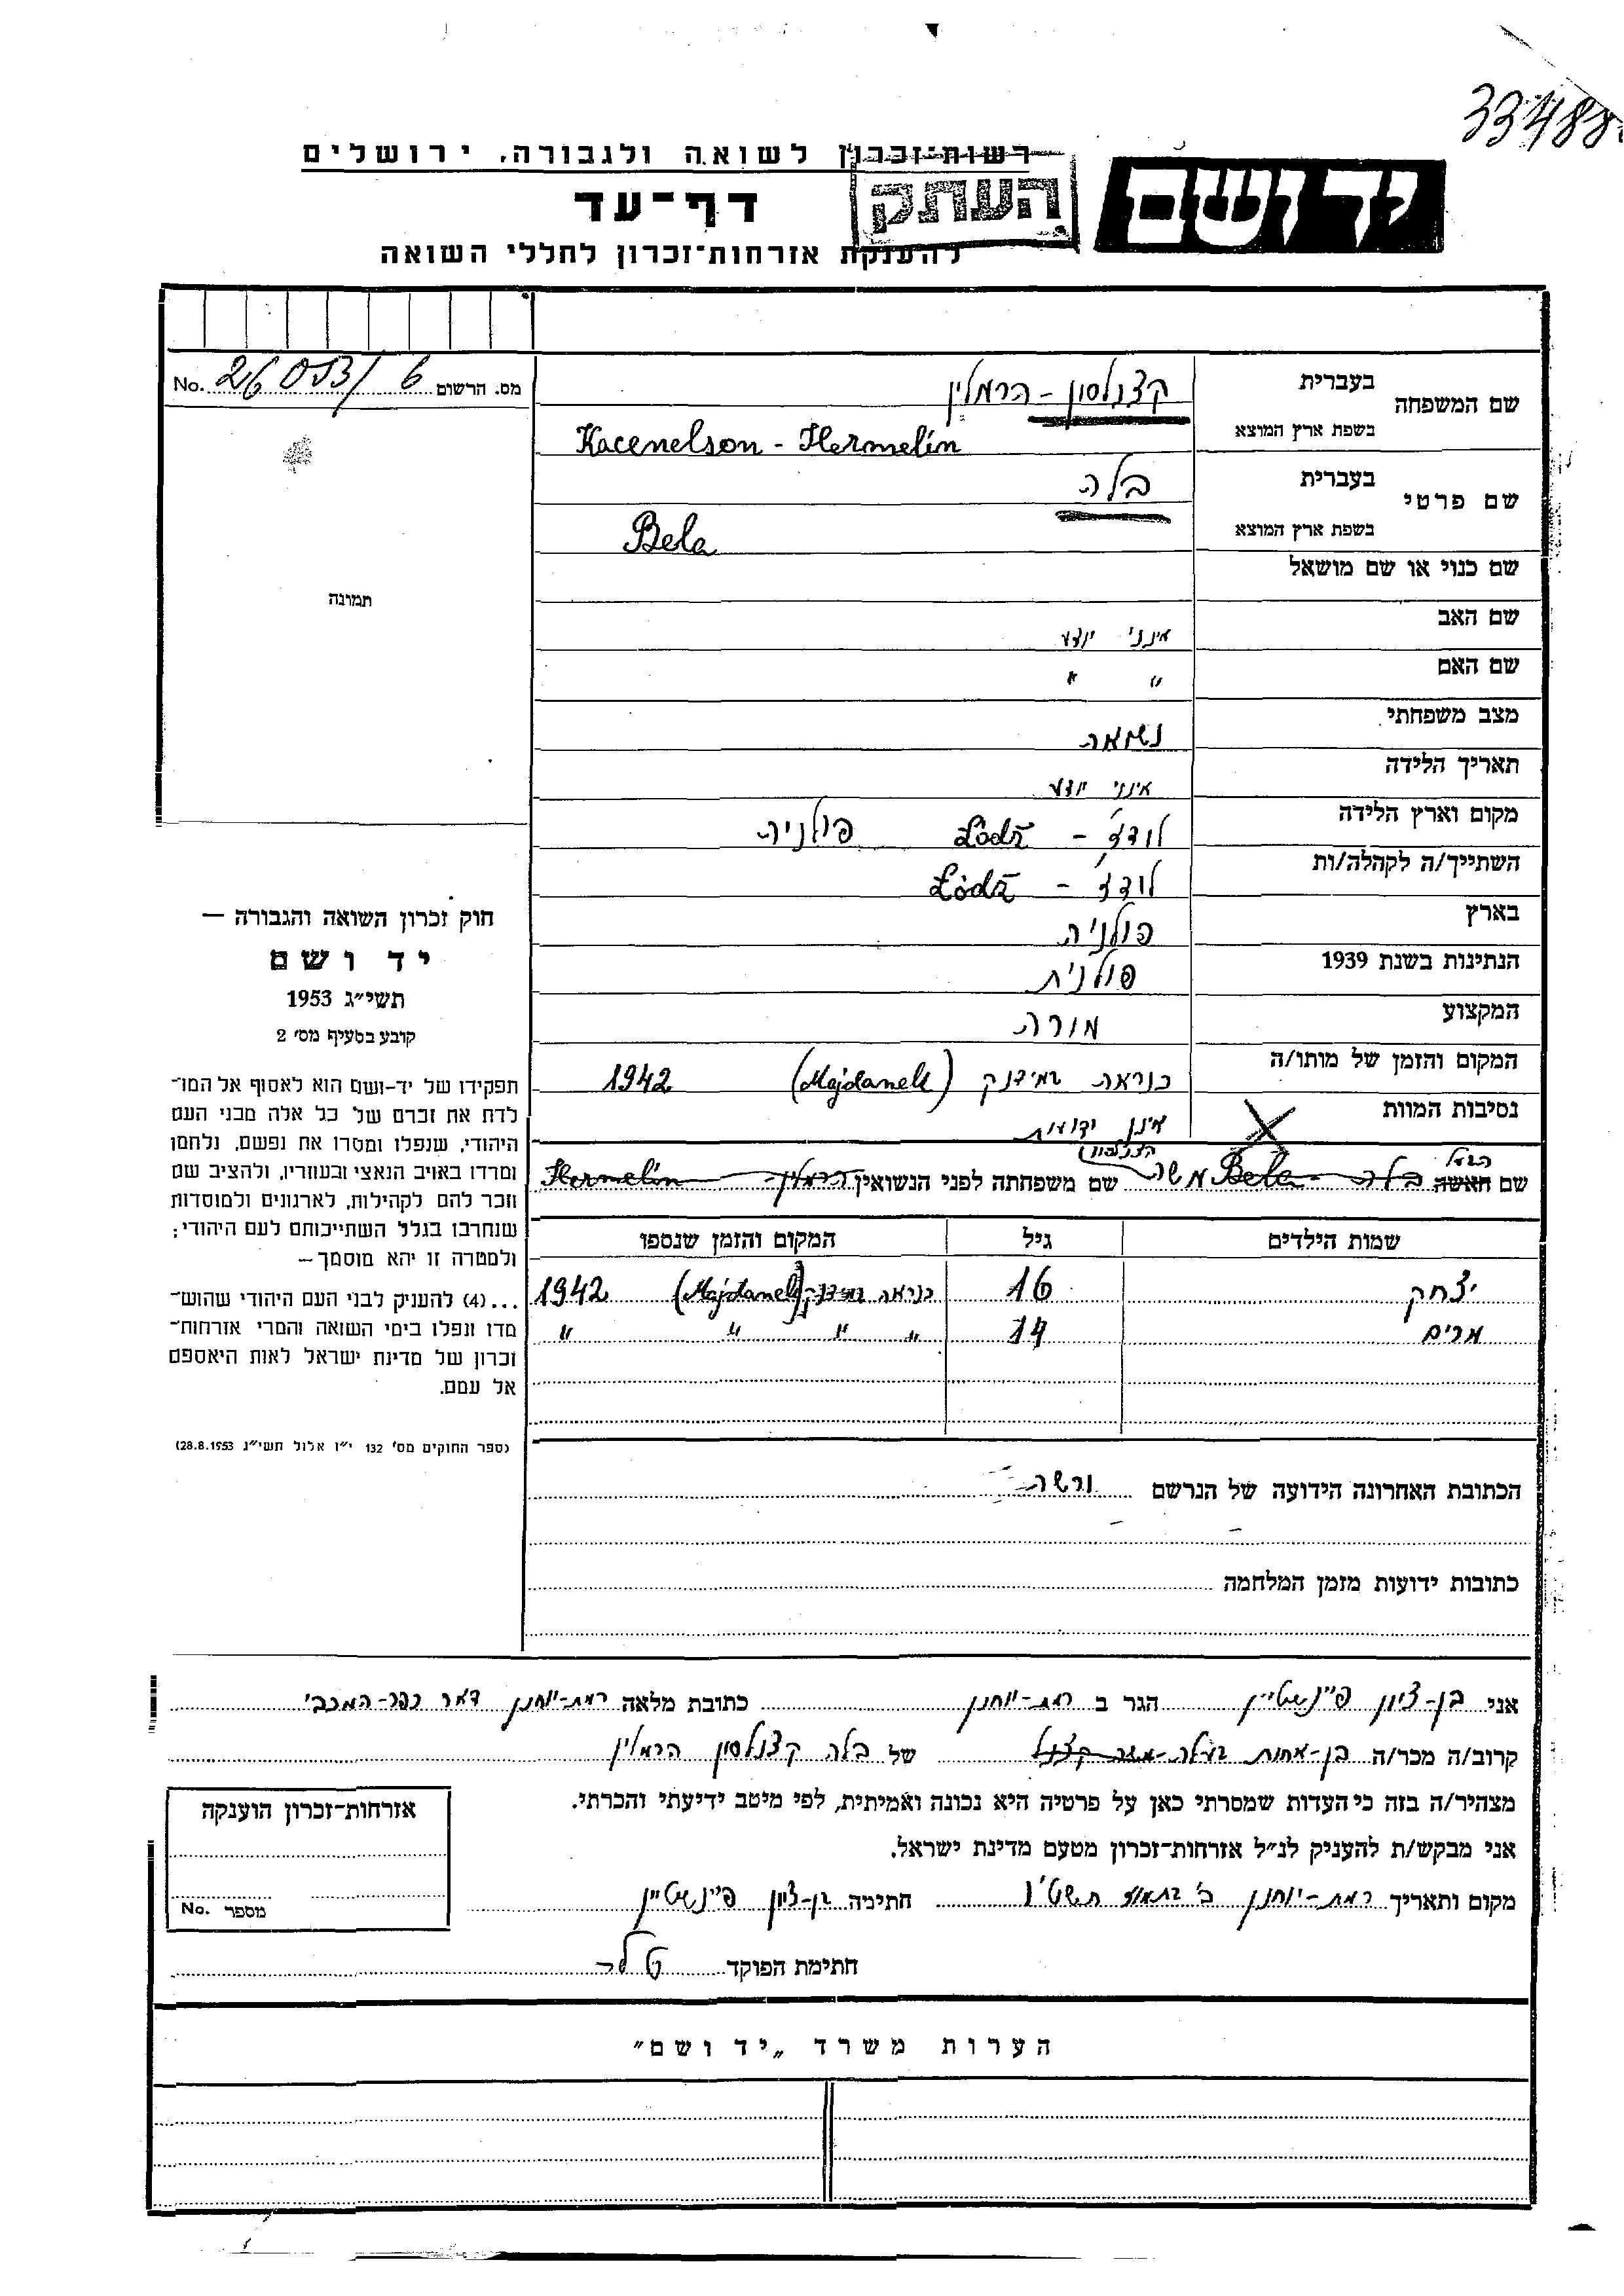 33488
רשות-זכרון לשואה ולגבורה, ירושלים
יד ושם
דף-עד
העתק
להענקת אזרחות-זכרון לחללי השואה
מס. הרשום 26053/6 No.
שם המשפחה
בעברית
קצנלסון - הרמלין
בשפת ארץ המוצא
Kacenelson - Hermelin
שם פרטי
בעברית
בלה
בשפת ארץ המוצא
Bela
שם כנוי או שם מושאל
שם האב אינני יודע
שם האם " "
מצב משפחתי נשואה
תאריך הלידה אינני יודע
מקום וארץ הלידה לודז' - Łódź פולניה
השתייך/ה לקהלה/ות לודז' - Łódź
בארץ פולניה
הנתינות בשנת 1939 פולנית
המקצוע מורה
המקום והזמן של מותו/ה כנראה במידנק (Majdanek) 1942
נסיבות המוות אינן ידועות
הבעל קצנלסון
שם האשה בלה - Bela משה שם משפחתה לפני הנשואין הרמלין - Hermelin
שמות הילדים גיל המקום והזמן שנספו
יצחק 16 כנראה במידנק (Majdanek) 1942
מרים 14 " " " "
הכתובת האחרונה הידועה של הנרשם ורשה
כתובות ידועות מזמן המלחמה
תמונה
חוק זכרון השואה והגבורה —
יד ושם
תשי״ג 1953
קובע בסעיף מס׳ 2
תפקידו של יד-ושם הוא לאסוף אל המו־
לדת את זכרם של כל אלה מבני העם
היהודי, שנפלו ומסרו את נפשם, נלחמו
ומרדו באויב הנאצי ובעוזריו, ולהציב שם
וזכר להם לקהילות, לארגונים ולמוסדות
שנחרבו בגלל השתייכותם לעם היהודי;
ולמטרה זו יהא מוסמך —
...(4) להעניק לבני העם היהודי שהוש־
מדו ונפלו בימי השואה והמרי אזרחות־
זכרון של מדינת ישראל לאות היאספם
אל עמם.
(ספר החוקים מס׳ 132 י״ז אלול תשי״ג 28.8.1953)
אני בן-ציון פינשטיין הגר ב רמת-יוחנן כתובת מלאה רמת-יוחנן דאר כפר-המכבי
קרוב/ה מכר/ה בן-אחות בעלה של בלה קצנלסון הרמלין
מצהיר/ה בזה כי העדות שמסרתי כאן על פרטיה היא נכונה ואמיתית, לפי מיטב ידיעתי והכרתי.
אני מבקש/ת להעניק לנ״ל אזרחות-זכרון מטעם מדינת ישראל.
מקום ותאריך רמת-יוחנן ב' בתמוז תשט"ו חתימה בן-ציון פינשטיין
חתימת הפוקד
אזרחות-זכרון הוענקה
מספר No.
הערות משרד „יד ושם״